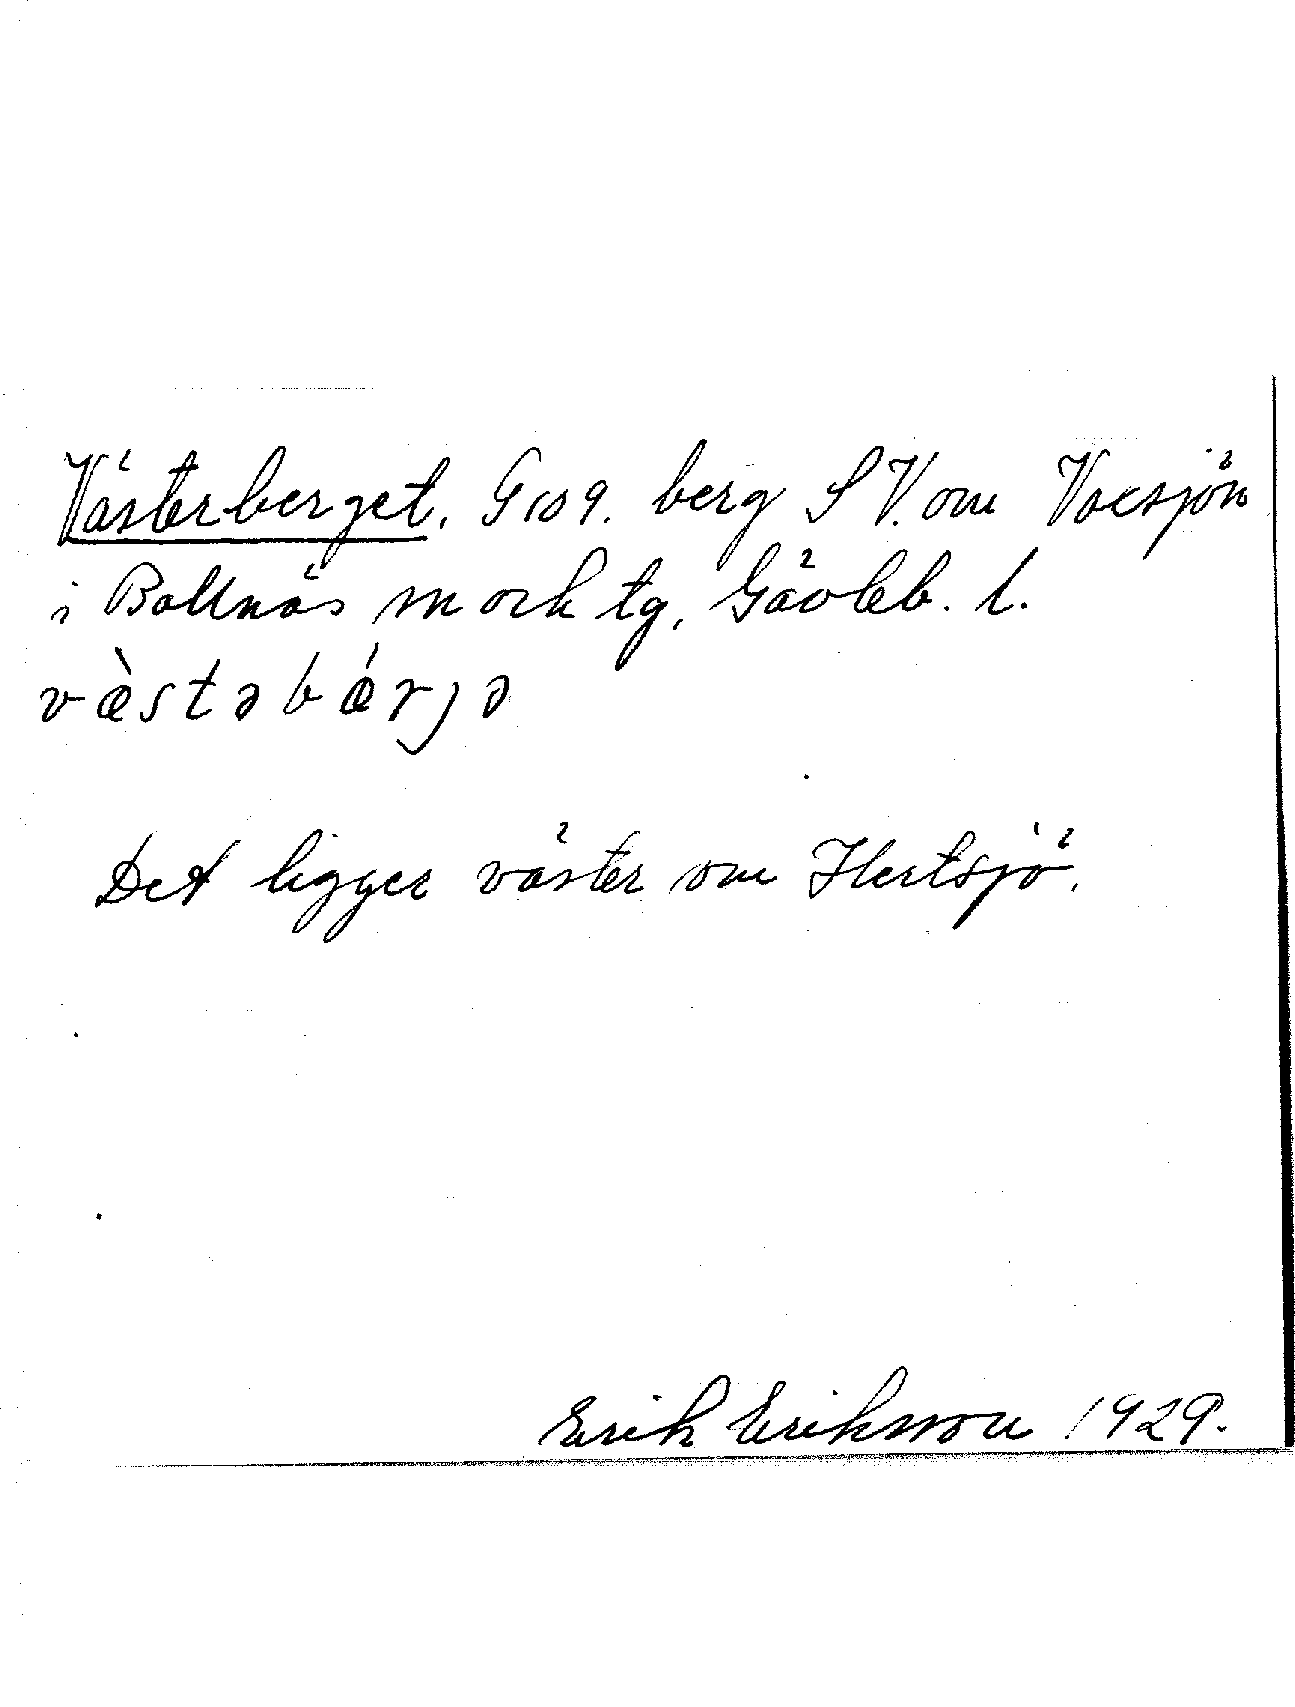 Västerberget. G 109. berg S V. om Voxsjön
i Bollnäs sn och tg, Gävleb. l.
vὰstəbǽrjə
Det ligger väster om Hertsjö.
Erik Eriksson 1929.